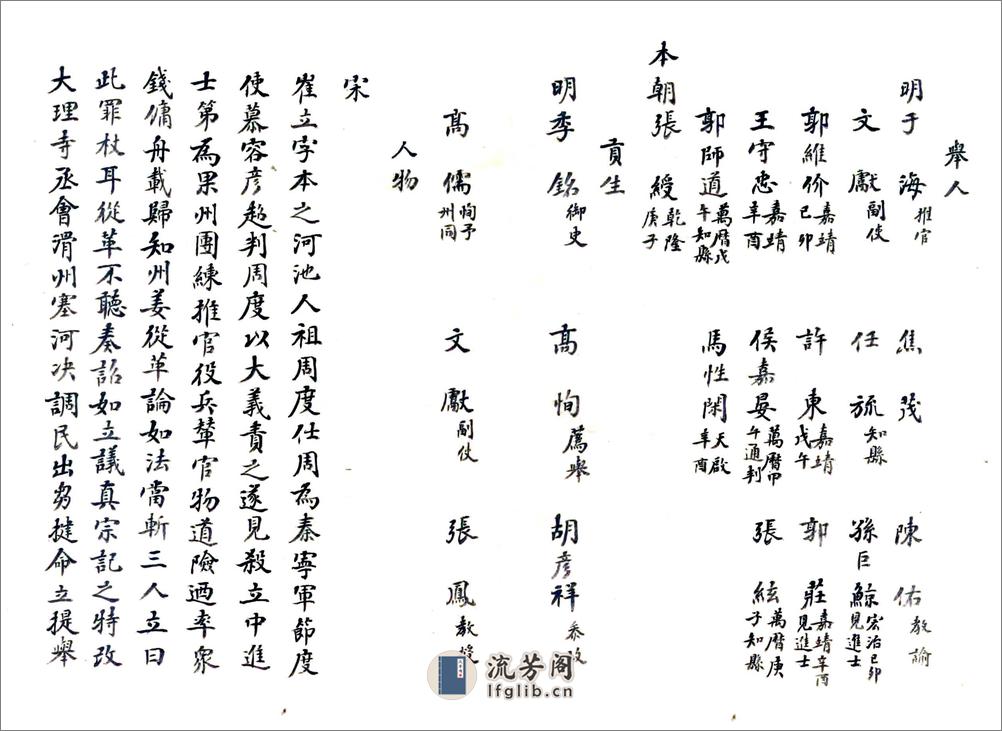 舉人
明于海推官 焦茂 陳佑教諭
文獻副使 任旒知縣 孫巨鯨宏治己卯見進士
郭維价嘉靖己卯 許東嘉靖戊午 郭莊嘉靖辛酉見進士
王守忠嘉靖辛酉 侯嘉晏萬曆甲午通判 張絃萬曆庚子知縣
郭師道萬曆戊午知縣 馬性閑天啟辛酉
本朝張綬乾隆庚子
貢生
明季銘御史 高恂薦舉 胡彥祥参政
高儒恂子州同 文獻副使 張鳳教授
人物
宋
崔立字本之河池人祖周度仕周為泰寧軍節度
使慕容彥超判周度以大義責之遂見殺立中進
士第為果州團練推官役兵輦官物道險廼率眾
錢傭舟載歸知州姜從革論如法當斬三人立曰
此罪杖耳從革不聽奏詔如立議真宗記之特改
大理寺丞會滑州塞河决調民出芻揵命立提舉
流芳阁
lfglib.cn